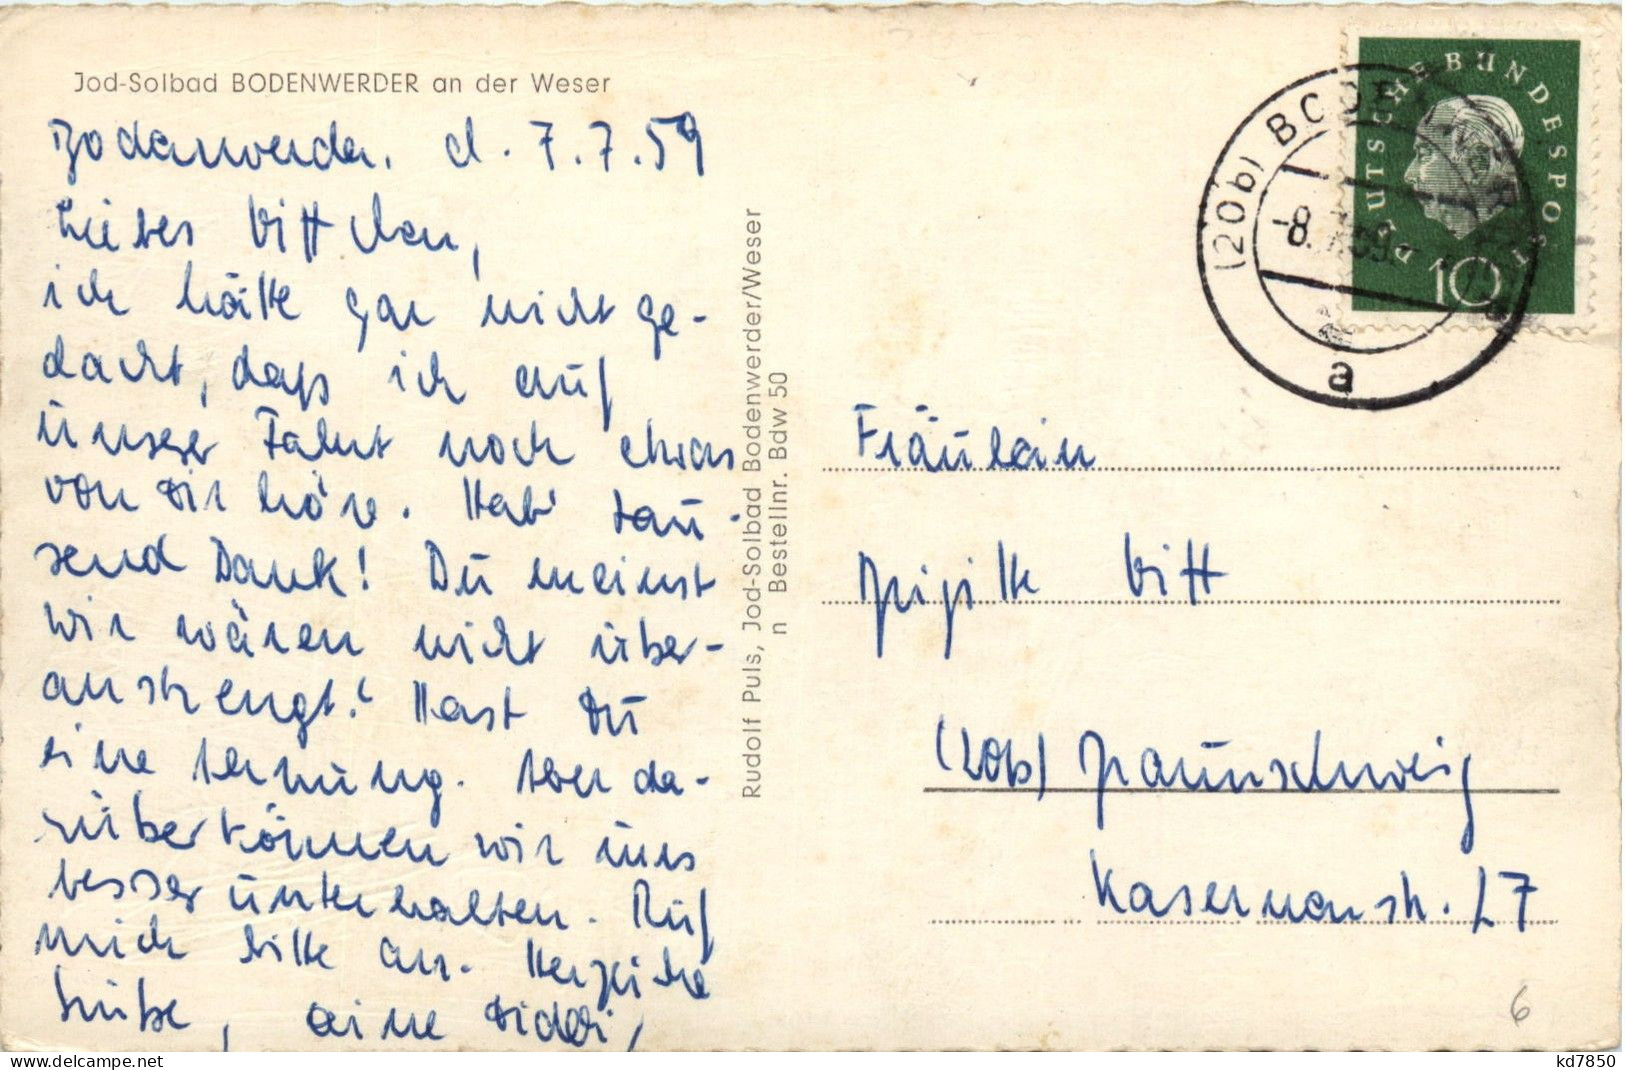 Jod-Solbad BODENWERDER an der Weser
Bodenwerder, d. 7.7.59
Liebes Vittchen,
ich hätte gar nicht ge-
dacht, daß ich auf
unserer Fahrt noch etwas
von Dir höre. Hab' tau-
send Dank! Du meinst
wir wären nicht über-
anstrengt? Hast Du
eine Ahnung. Aber da-
rüber können wir uns
besser unterhalten. Ruf
mich bitte an. Herzliche
Grüße,
Rudolf Puls, Jod-Solbad Bodenwerder/Weser
n Bestellnr. Bdw 50
DEUTSCHE BUNDESPOST
10
(20b) BODENWERDER
-8.7.59.
a
Fräulein
Brigitte Vitt
(20b) Braunschweig
Kasernenstr. 27
6
delcampe.net
kd7850